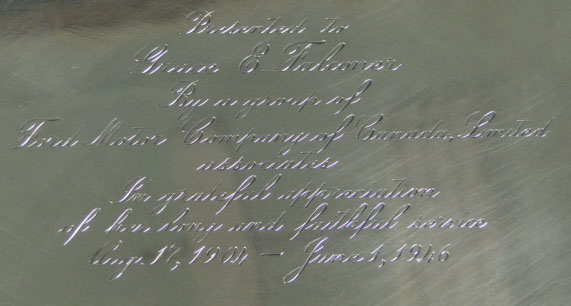 Presented to
Grace E. Falconer
By a group of
Ford Motor Company of Canada, Limited
associates
In grateful appreciation
of her long and faithful service
Aug. 17, 1904 — June 1, 1946